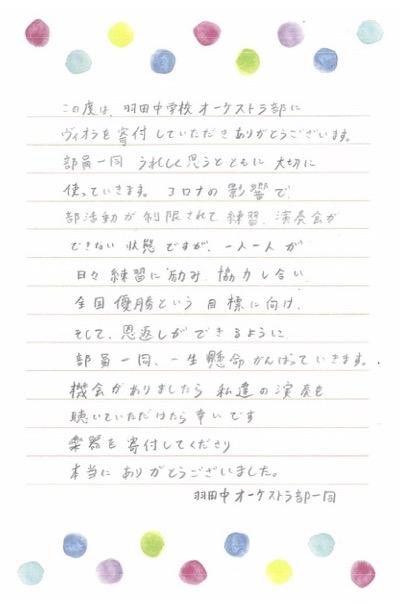 この度は、羽田中学校オーケストラ部に
ヴィオラを寄付していただきありがとうございます。
部員一同 うれしく思うとともに 大切に
使っていきます。コロナの影響で、
部活動が制限されて練習、演奏会が
できない状態ですが、一人一人が
日々練習に励み、協力し合い、
全国優勝という目標に向け、
そして、恩返しができるように
部員一同、一生懸命がんばっていきます。
機会がありましたら 私達の演奏を
聴いていただけたら幸いです
楽器を寄付してくださり
本当にありがとうございました。
羽田中オーケストラ部一同